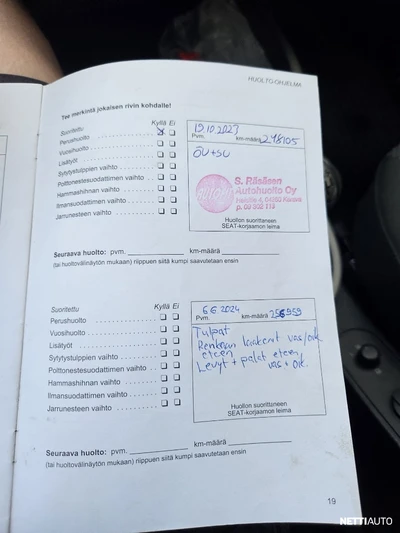 HUOLTO-OHJELMA
Tee merkintä jokaisen rivin kohdalle!
Suoritettu Kyllä Ei
Perushuolto
Vuosihuolto
Lisätyöt
Sytytystulppien vaihto
Polttonestesuodattimen vaihto
Hammashihnan vaihto
Ilmansuodattimen vaihto
Jarrunesteen vaihto
19.10.2023
Pvm. km-määrä 248105
ÖV+SU
S. Räsäsen
Autohuolto Oy
Huollon suorittaneen
SEAT-korjaamon leima
Seuraava huolto: pvm. km-määrä
(tai huoltovälinäytön mukaan) riippuen siitä kumpi saavutetaan ensin
Suoritettu Kyllä Ei
Perushuolto
Vuosihuolto
Lisätyöt
Sytytystulppien vaihto
Polttonestesuodattimen vaihto
Hammashihnan vaihto
Ilmansuodattimen vaihto
Jarrunesteen vaihto
6.6.2024
Pvm. km-määrä 256959
Tulpat
Renkaan laakerit vas/oik
eteen
Levyt + palat eteen
vas + oik.
Huollon suorittaneen
SEAT-korjaamon leima
Seuraava huolto: pvm. km-määrä
(tai huoltovälinäytön mukaan) riippuen siitä kumpi saavutetaan ensin
19
NETTIAUTO